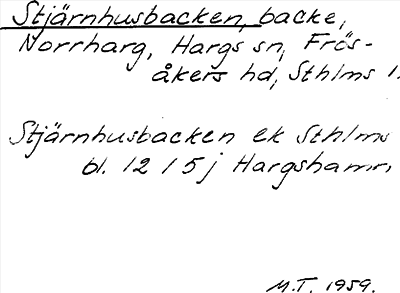 Stjärnhusbacken, backe,
Norrharg, Hargs sn, Frös-
åkers hd, Sthlms l.
Stjärnhusbacken ek Sthlms
bl. 12 I 5 j Hargshamn
M.T. 1959.